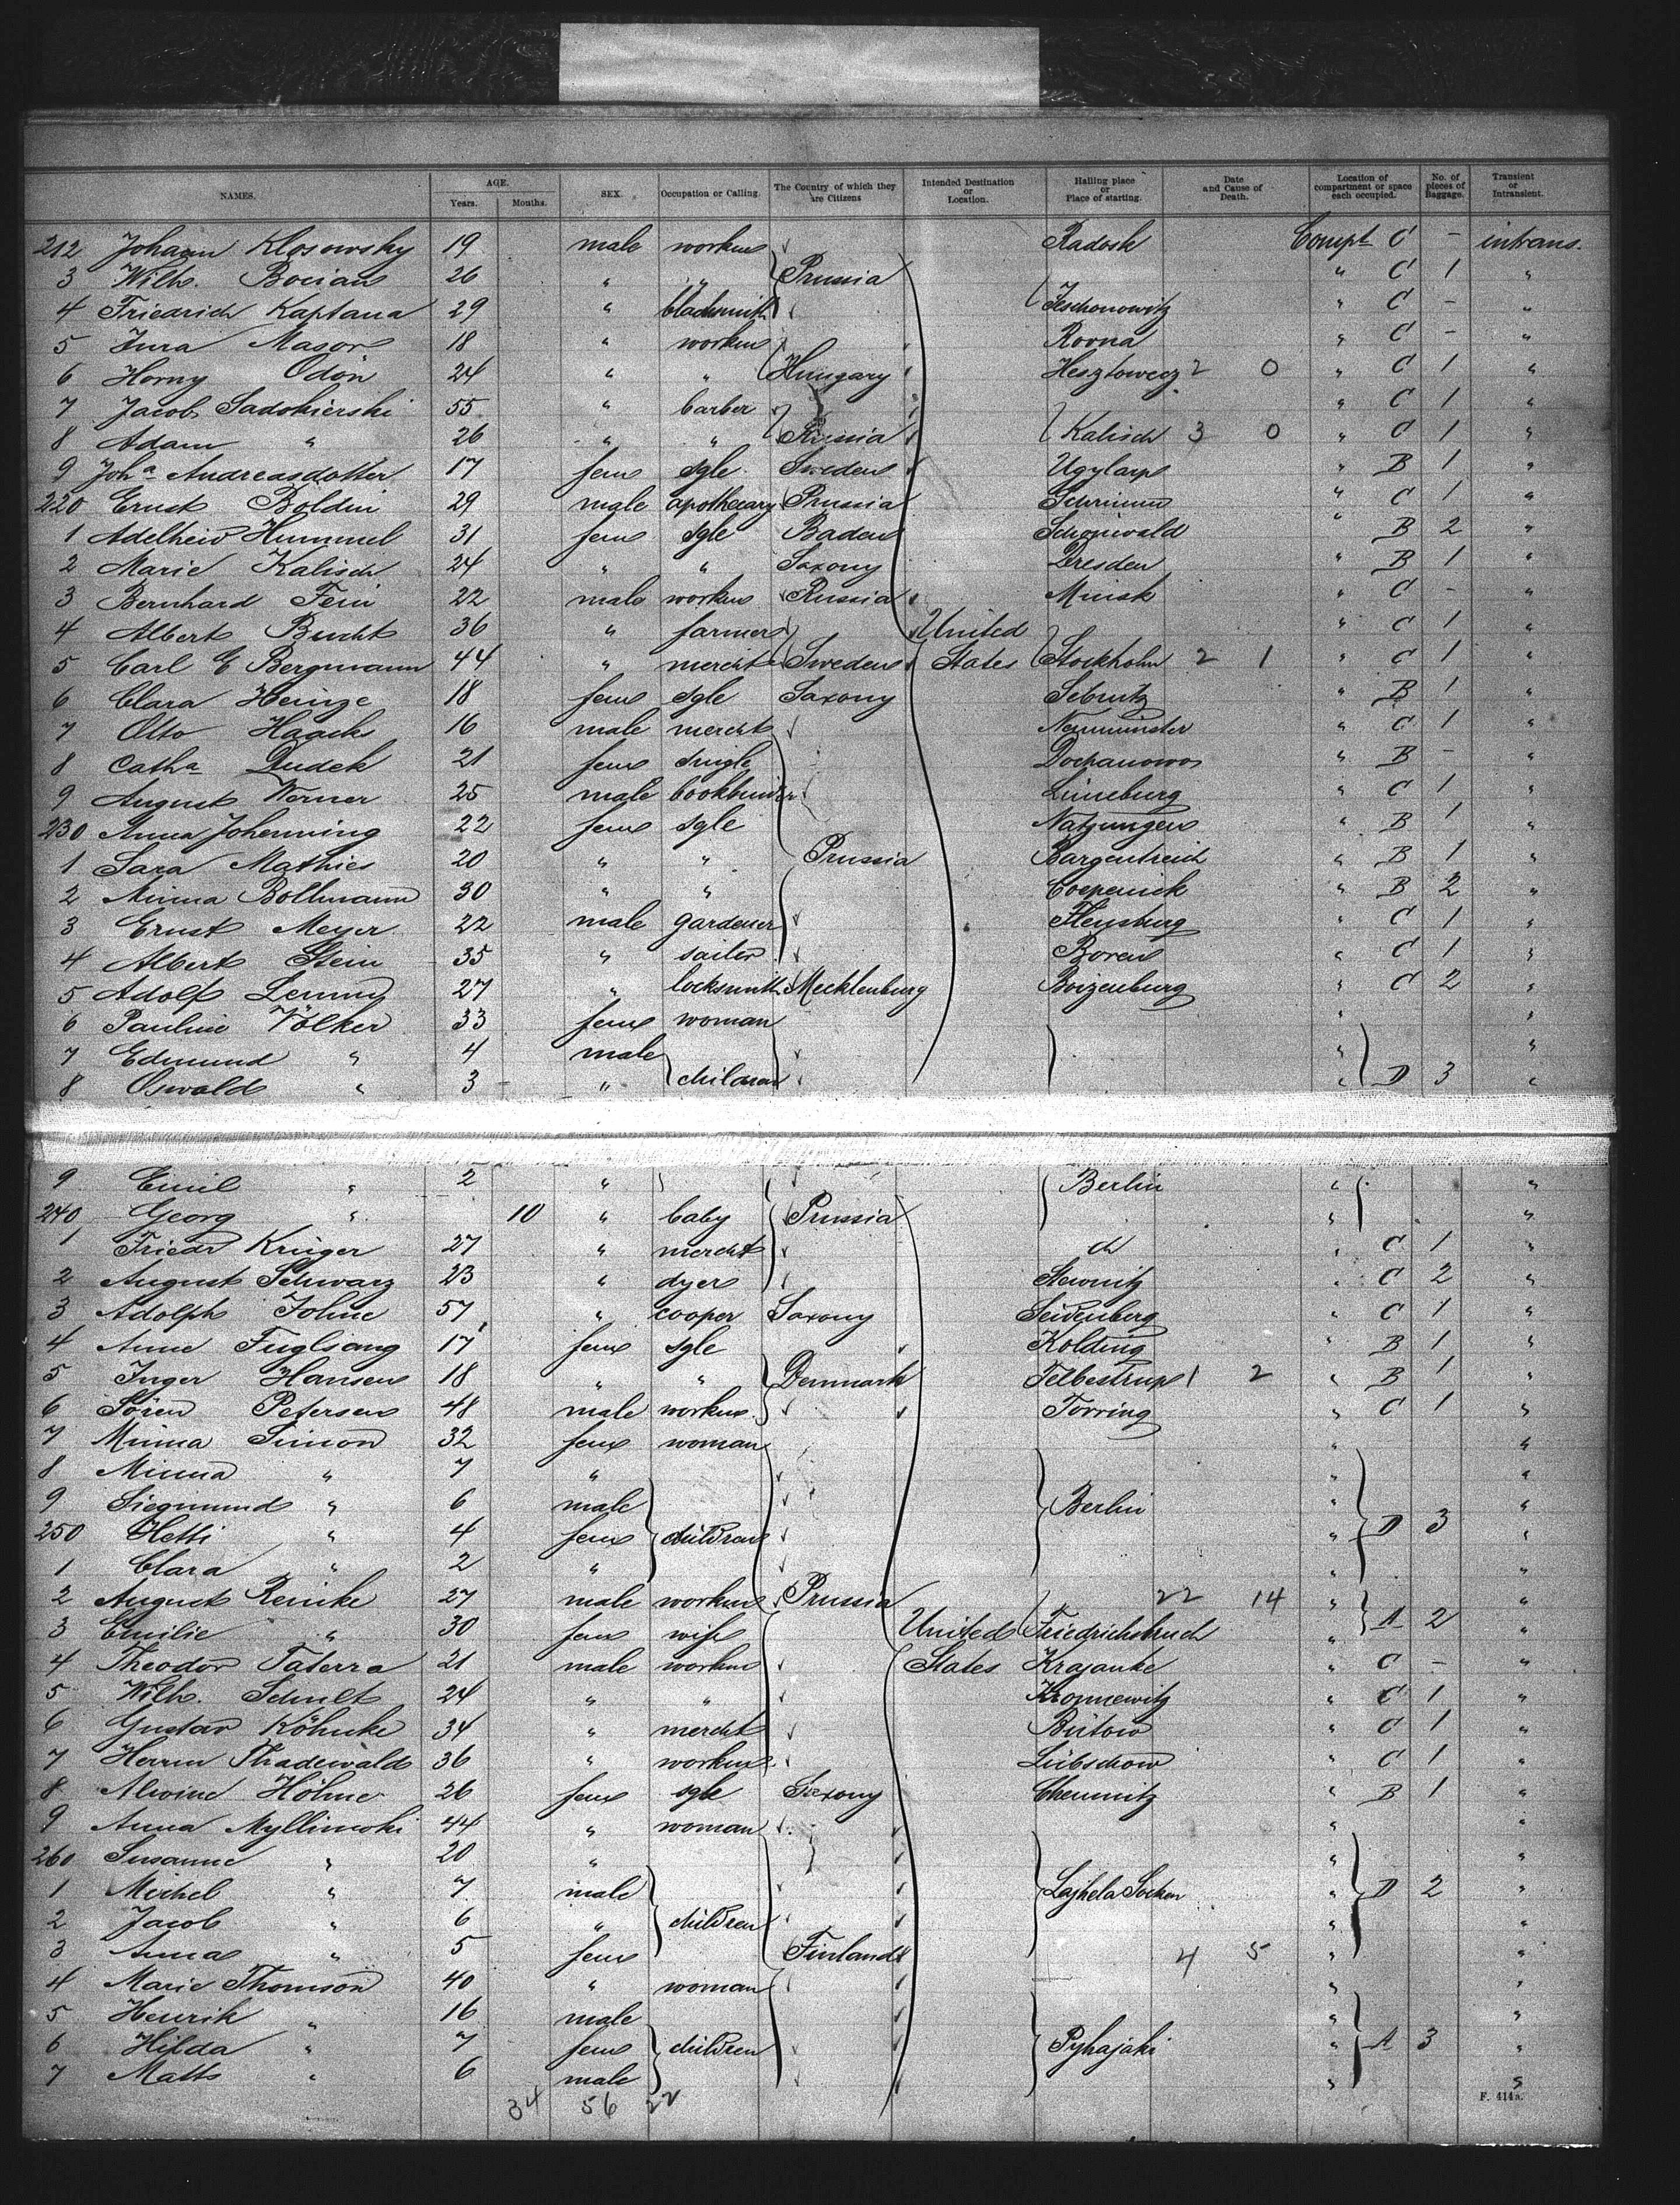 NAMES. AGE. Years. Months. SEX. Occupation or Calling. The Country of which they are Citizens Intended Destination or Location. Hailing place or Place of starting. Date and Cause of Death. Location of compartment or space each occupied. No. of pieces of Baggage. Transient or Intransient.
212 Johann Klosowsky 19 male workm Radosk Compt C - intrans.
3 Wilh. Bocian 26 " " Prussia " C 1 "
4 Friedrich Kaptana 29 " blacksmith Jeschonowitz " C - "
5 Jura Masor 18 " workm Rovna " C - "
6 Horny Odön 24 " " Hungary Hesztowecz 2 0 " C 1 "
7 Jacob Sadokierski 55 " barber " C 1 "
8 Adam " 26 " " Russia Kalisch 3 0 " C 1 "
9 Joha Andreasdotter 17 fem sgle Sweden Ugylarp " B 1 "
220 Ernst Boldin 29 male apothecary Prussia " C 1 "
1 Adelheid Hummel 31 fem sgle Baden Schönwald " B 2 "
2 Marie Kalisch 24 " " Saxony Dresden " B 1 "
3 Bernhard Fein 22 male workm Russia Minsk " C - "
4 Albert Bucht 36 " farmer United " C 1 "
5 Carl E Bergmann 44 " mercht Sweden States Stockholm 2 1 " C 1 "
6 Clara Heinze 18 fem sgle Saxony Sebnitz " B 1 "
7 Otto Haack 16 male mercht Neumünster " C 1 "
8 Catha Dudek 21 fem single Dochanowo " B - "
9 August Werner 25 male bookbinder Lüneburg " C 1 "
230 Anna Johenning 22 fem sgle Natzungen " B 1 "
1 Sara Mathies 20 " " Prussia Bargentreich " B 1 "
2 Minna Bollmann 30 " " Coepenick " B 2 "
3 Ernst Meyer 22 male gardener Flensburg " C 1 "
4 Albert Stein 35 " sailor Boren " C 1 "
5 Adolf Lemmy 27 " locksmith Mecklenburg Boizenburg " C 2 "
6 Pauline Völker 33 fem woman " "
7 Edmund " 4 male " "
8 Oswald " 3 " children " D 3 "
9 Emil " 2 " Berlin " "
240 Georg " 10 " baby Prussia " "
1 Friedr Krüger 27 " mercht do " C 1 "
2 August Schwarz 23 " dyer Stewnitz " C 2 "
3 Adolph Johne 57 " cooper Saxony Seidenberg " C 1 "
4 Anne Fuglsang 17 fem sgle Kolding " B 1 "
5 Inger Hansen 18 " " Denmark Felbestrup 1 2 " B 1 "
6 Sören Petersen 48 male workm Torring " C 1 "
7 Minna Simon 32 fem woman " "
8 Minna " 7 " " "
9 Siegmund " 6 male Berlin " "
250 Hetti " 4 fem children " D 3 "
1 Clara " 2 " " "
2 August Reinke 27 male workm Prussia 22 14 " "
3 Emilie " 30 fem wife United Friedrichsbruch " A 2 "
4 Theodor Taterra 21 male workm States Krajanke " C - "
5 Wilh. Schult 24 " " Kronnewitz " C 1 "
6 Gustav Köhnke 34 " mercht Bütow " C 1 "
7 Herrm Thadewald 36 " workm Lübschow " C 1 "
8 Alwine Höhne 26 fem sgle Saxony Chemnitz " B 1 "
9 Anna Myllimoki 44 " woman " "
260 Susanne " 20 " " "
1 Michel " 7 male Lajhela Socken " D 2 "
2 Jacob " 6 " children " "
3 Anna " 5 fem Finland 4 5 " "
4 Marie Thomson 40 " woman " "
5 Henrik " 16 male " "
6 Hilda " 7 fem children Pyhajaki " A 3 "
7 Matts " 6 male " "
34 56 22
F. 414a.